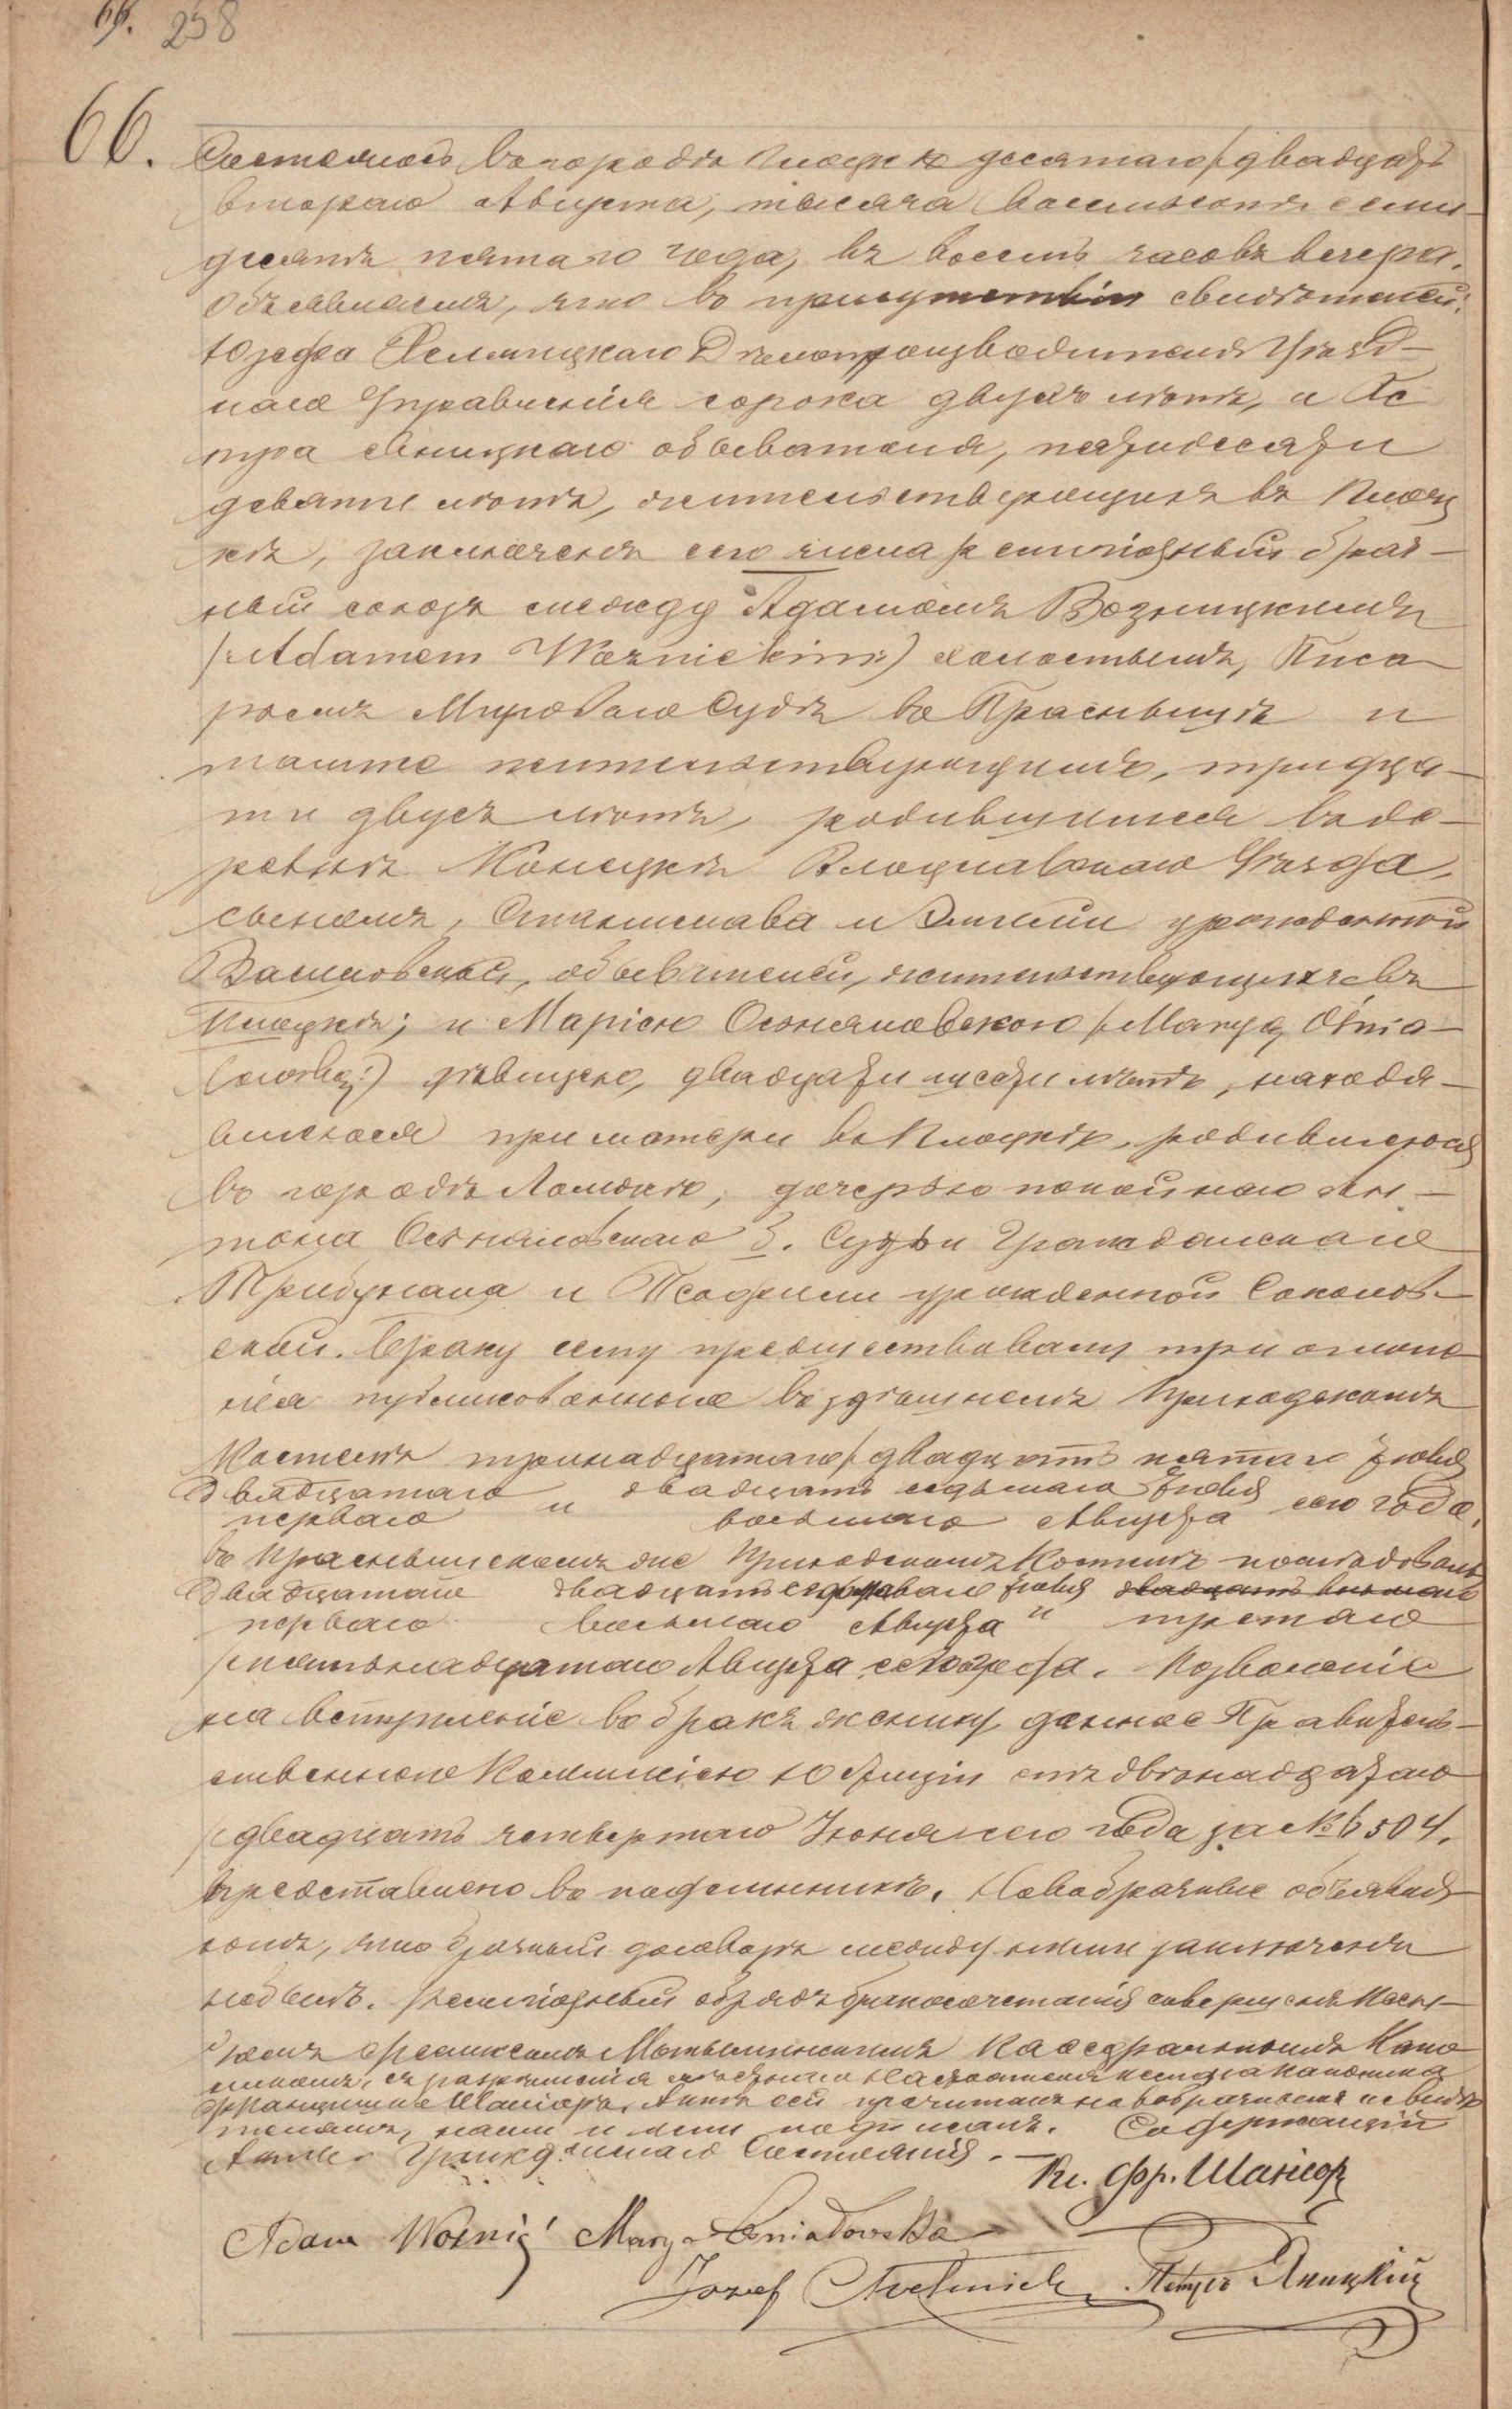 66. 258
66. Состоялось въ городѣ Плоцкѣ десятаго /двадцать
втораго Августа, тысяча восемьсотъ семь
десятъ пятаго года, въ восемь часовъ вечера.
Объявляемъ, что въ присутствіи свидѣтелей:
Юзефа Хелмицкаго Дѣлопроизводителя Уѣзд-
наго Управленія сорока двухъ лѣтъ, и Пе
тра Яницкаго обывателя, пятидесяти
девяти лѣтъ, жительствующихъ въ Плоц
кѣ, заключенъ сего числа религіозный брач-
ный союзъ между Адамомъ Возницкимъ
/:Adamem Woznickim:) холостымъ, Писа
ремъ Мироваго Суда въ Праснышѣ и
тамже жительствующимъ, тридца-
ти двухъ лѣтъ, родившимся въ де-
ревнѣ Конецкѣ Влоцлавскаго Уѣзда,
сыномъ, Станислава и Эмиліи урожденной
обывателей, жительствующихъ въ
Плоцкѣ; и Маріею Оснялевскою /:Maryą Ośnia-
дѣвицею, двадцати шести лѣтъ, находя-
щеюся при матери въ Плоцкѣ, родившеюся
въ городѣ Ломжѣ, дочерью покойнаго Ан-
тона б. Судьи Гражданскаго
Трибунала и Теофили урожденной Соколов-
ской. Браку сему предшествовали три оглаше
нія публикованныя въ здѣшнемъ Приходскомъ
Костелѣ тринадцатаго /двадцать пятаго Іюля
двадцатаго и двадцать седьмаго Іюля сего года,
перваго восьмаго Августа
въ Праснышскомъ же Приходскомъ Костелѣ
двадцатаго двадцать седьмаго Іюля
перваго восьмаго Августа и третьяго
/пятьнадцатаго Августа сего года. Позволеніе
на вступленіе въ бракъ жениху данное Правитель-
ственною Коммисіею Юстиціи отъ двѣнадцатаго
/двадцать четвертаго Іюня сего года за № 6504.
представлено въ подлинникѣ. Новобрачные объявля
ютъ, что брачный договоръ между ними заключенъ
небылъ. Религіозный обрядъ бракосочетанія совершенъ Ксен-
дземъ Каѳедральнымъ Кано
никомъ, съ разрѣшенія мѣстнаго Настоятеля ксендза каноника
Франциска Шаніора. Актъ сей прочитанъ новобрачнымъ и свидѣ
телямъ, нами и ими подписанъ. Содержащій
Акты Гражданскаго Состоянія.
Кс. Фр. Шаніор
Adam Mary
Jozef Петръ Яницкій